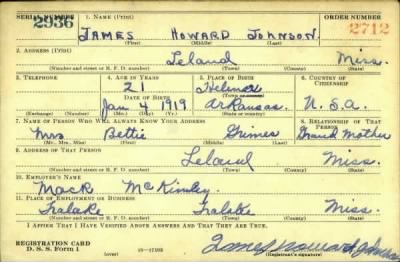 SERIAL NUMBER 1. NAME (Print) ORDER NUMBER
2936 JAMES HOWARD JOHNSON 2712
(First) (Middle) (Last)
2. ADDRESS (Print)
Leland Miss.
(Number and street or R. F. D. number) (Town) (County) (State)
3. TELEPHONE 4. AGE IN YEARS 5. PLACE OF BIRTH 6. COUNTRY OF CITIZENSHIP
21 Helena
DATE OF BIRTH (Town or county)
Jan 4 1919 Arkansas U.S.A.
(Exchange) (Number) (Mo.) (Day) (Yr.) (State or country)
7. NAME OF PERSON WHO WILL ALWAYS KNOW YOUR ADDRESS 8. RELATIONSHIP OF THAT PERSON
Mrs Bettie Grimes Grand Mother
(Mr., Mrs., Miss) (First) (Middle) (Last)
9. ADDRESS OF THAT PERSON
Leland Miss.
(Number and street or R. F. D. number) (Town) (County) (State)
10. EMPLOYER'S NAME
Mack McKinley
11. PLACE OF EMPLOYMENT OR BUSINESS
Tralake Tralake Miss
(Number and street or R. F. D. number) (Town) (County) (State)
I AFFIRM THAT I HAVE VERIFIED ABOVE ANSWERS AND THAT THEY ARE TRUE.
REGISTRATION CARD
D. S. S. Form 1 (over) James howard Johnson
(Registrant's signature)